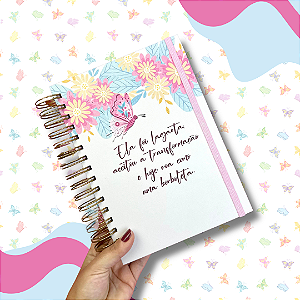 Ela foi lagarta,
aceitou a transformação
e hoje voa como
uma borboleta.